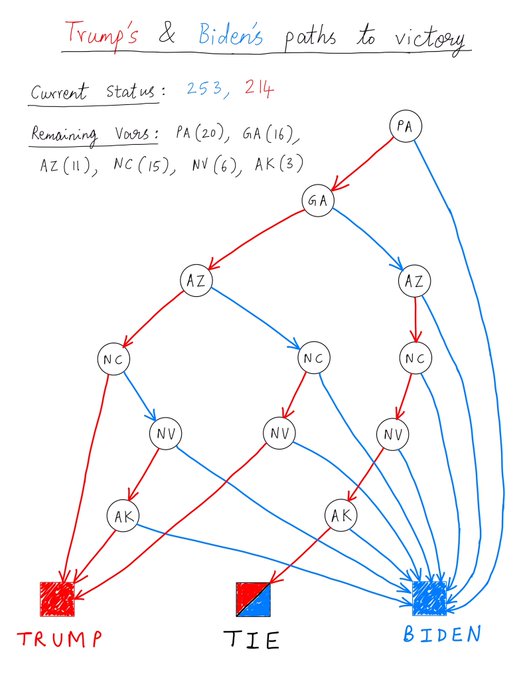 Trump's & Biden's paths to victory
Current Status: 253, 214
Remaining Vars: PA(20), GA(16),
AZ(11), NC(15), NV(6), AK(3)
PA
GA
AZ
AZ
NC
NC
NC
NV
NV
NV
AK
AK
TRUMP
TIE
BIDEN